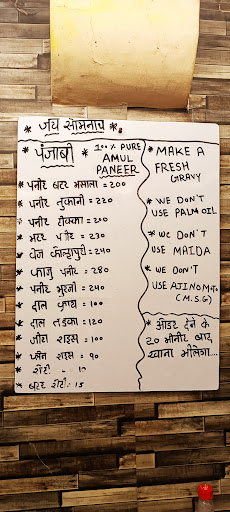 * जय सोमनाथ *
* पंजाबी * 100% PURE
AMUL
PANEER
* पनीर बटर मसाला = 200
* पनीर तुफानी = 220
* पनीर टीक्का = 200
* मटर पनीर = 230
* वेज कोल्हापुरी = 240
* काजु पनीर = 280
* पनीर भुरजी = 240
* दाल फ्राय = 100
* दाल तडका = 120
* जीरा राइस = 100
* प्लेन राइस = 90
* रोटी = 10
* बटर रोटी = 15
* MAKE A
FRESH
GRAVY
* WE DON'T
USE PALM OIL
* WE DON'T
USE MAIDA
* WE DON'T
USE AJINOMOTO
(M.S.G)
* ऑडर देने के
20 मीनीट बाद
खाना मीलेगा...